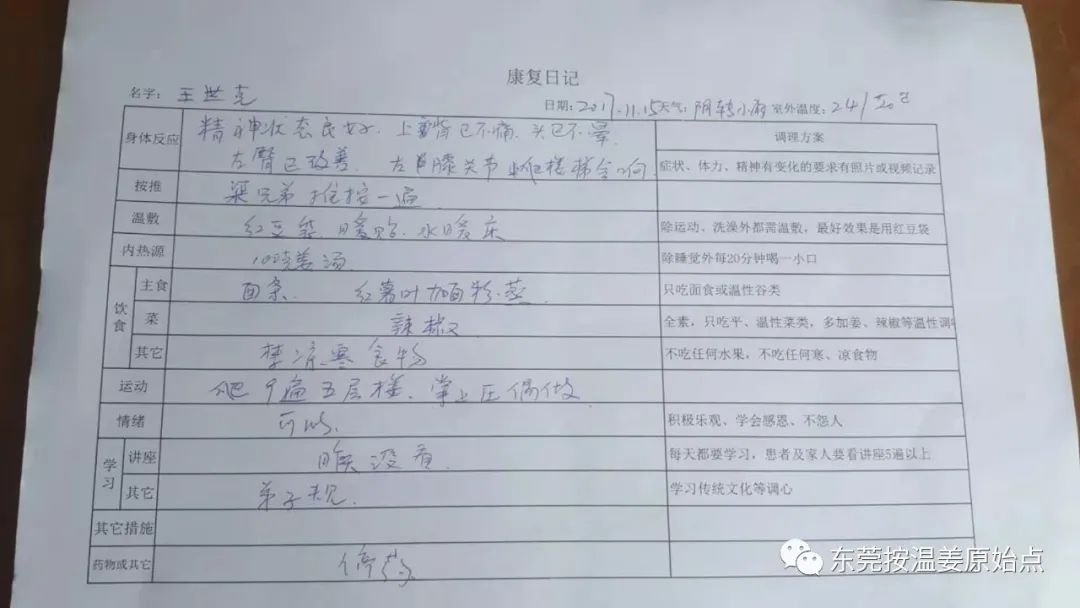 康复日记
名字: 王世克 日期: 2017.11.15 天气: 阴转小雨 室外温度: 24/20℃
身体反应 精神状态良好、上背已不痛、头已不晕、 调理方案
左臂已改善、左膝关节 楼梯会响 症状、体力、精神有变化的要求有照片或视频记录
按推 梁兄弟推按一遍
温敷 红豆袋 暖贴 水暖床 除运动、洗澡外都需温敷，最好效果是用红豆袋
内热源 姜汤 除睡觉外每20分钟喝一小口
饮食 主食 面条 红薯叶加面粉蒸 只吃面食或温性谷类
菜 辣椒 全素，只吃平、温性菜类，多加姜、辣椒等温性调
其它 禁凉寒食物 不吃任何水果，不吃任何寒、凉食物
运动 爬9遍五层楼、掌上压偶做
情绪 可以、 积极乐观、学会感恩、不怨人
学习 讲座 没看、 每天都要学习，患者及家人要看讲座5遍以上
其它 弟子规、 学习传统文化等调心
其它措施
药物或其它 停药
东莞按温姜原始点